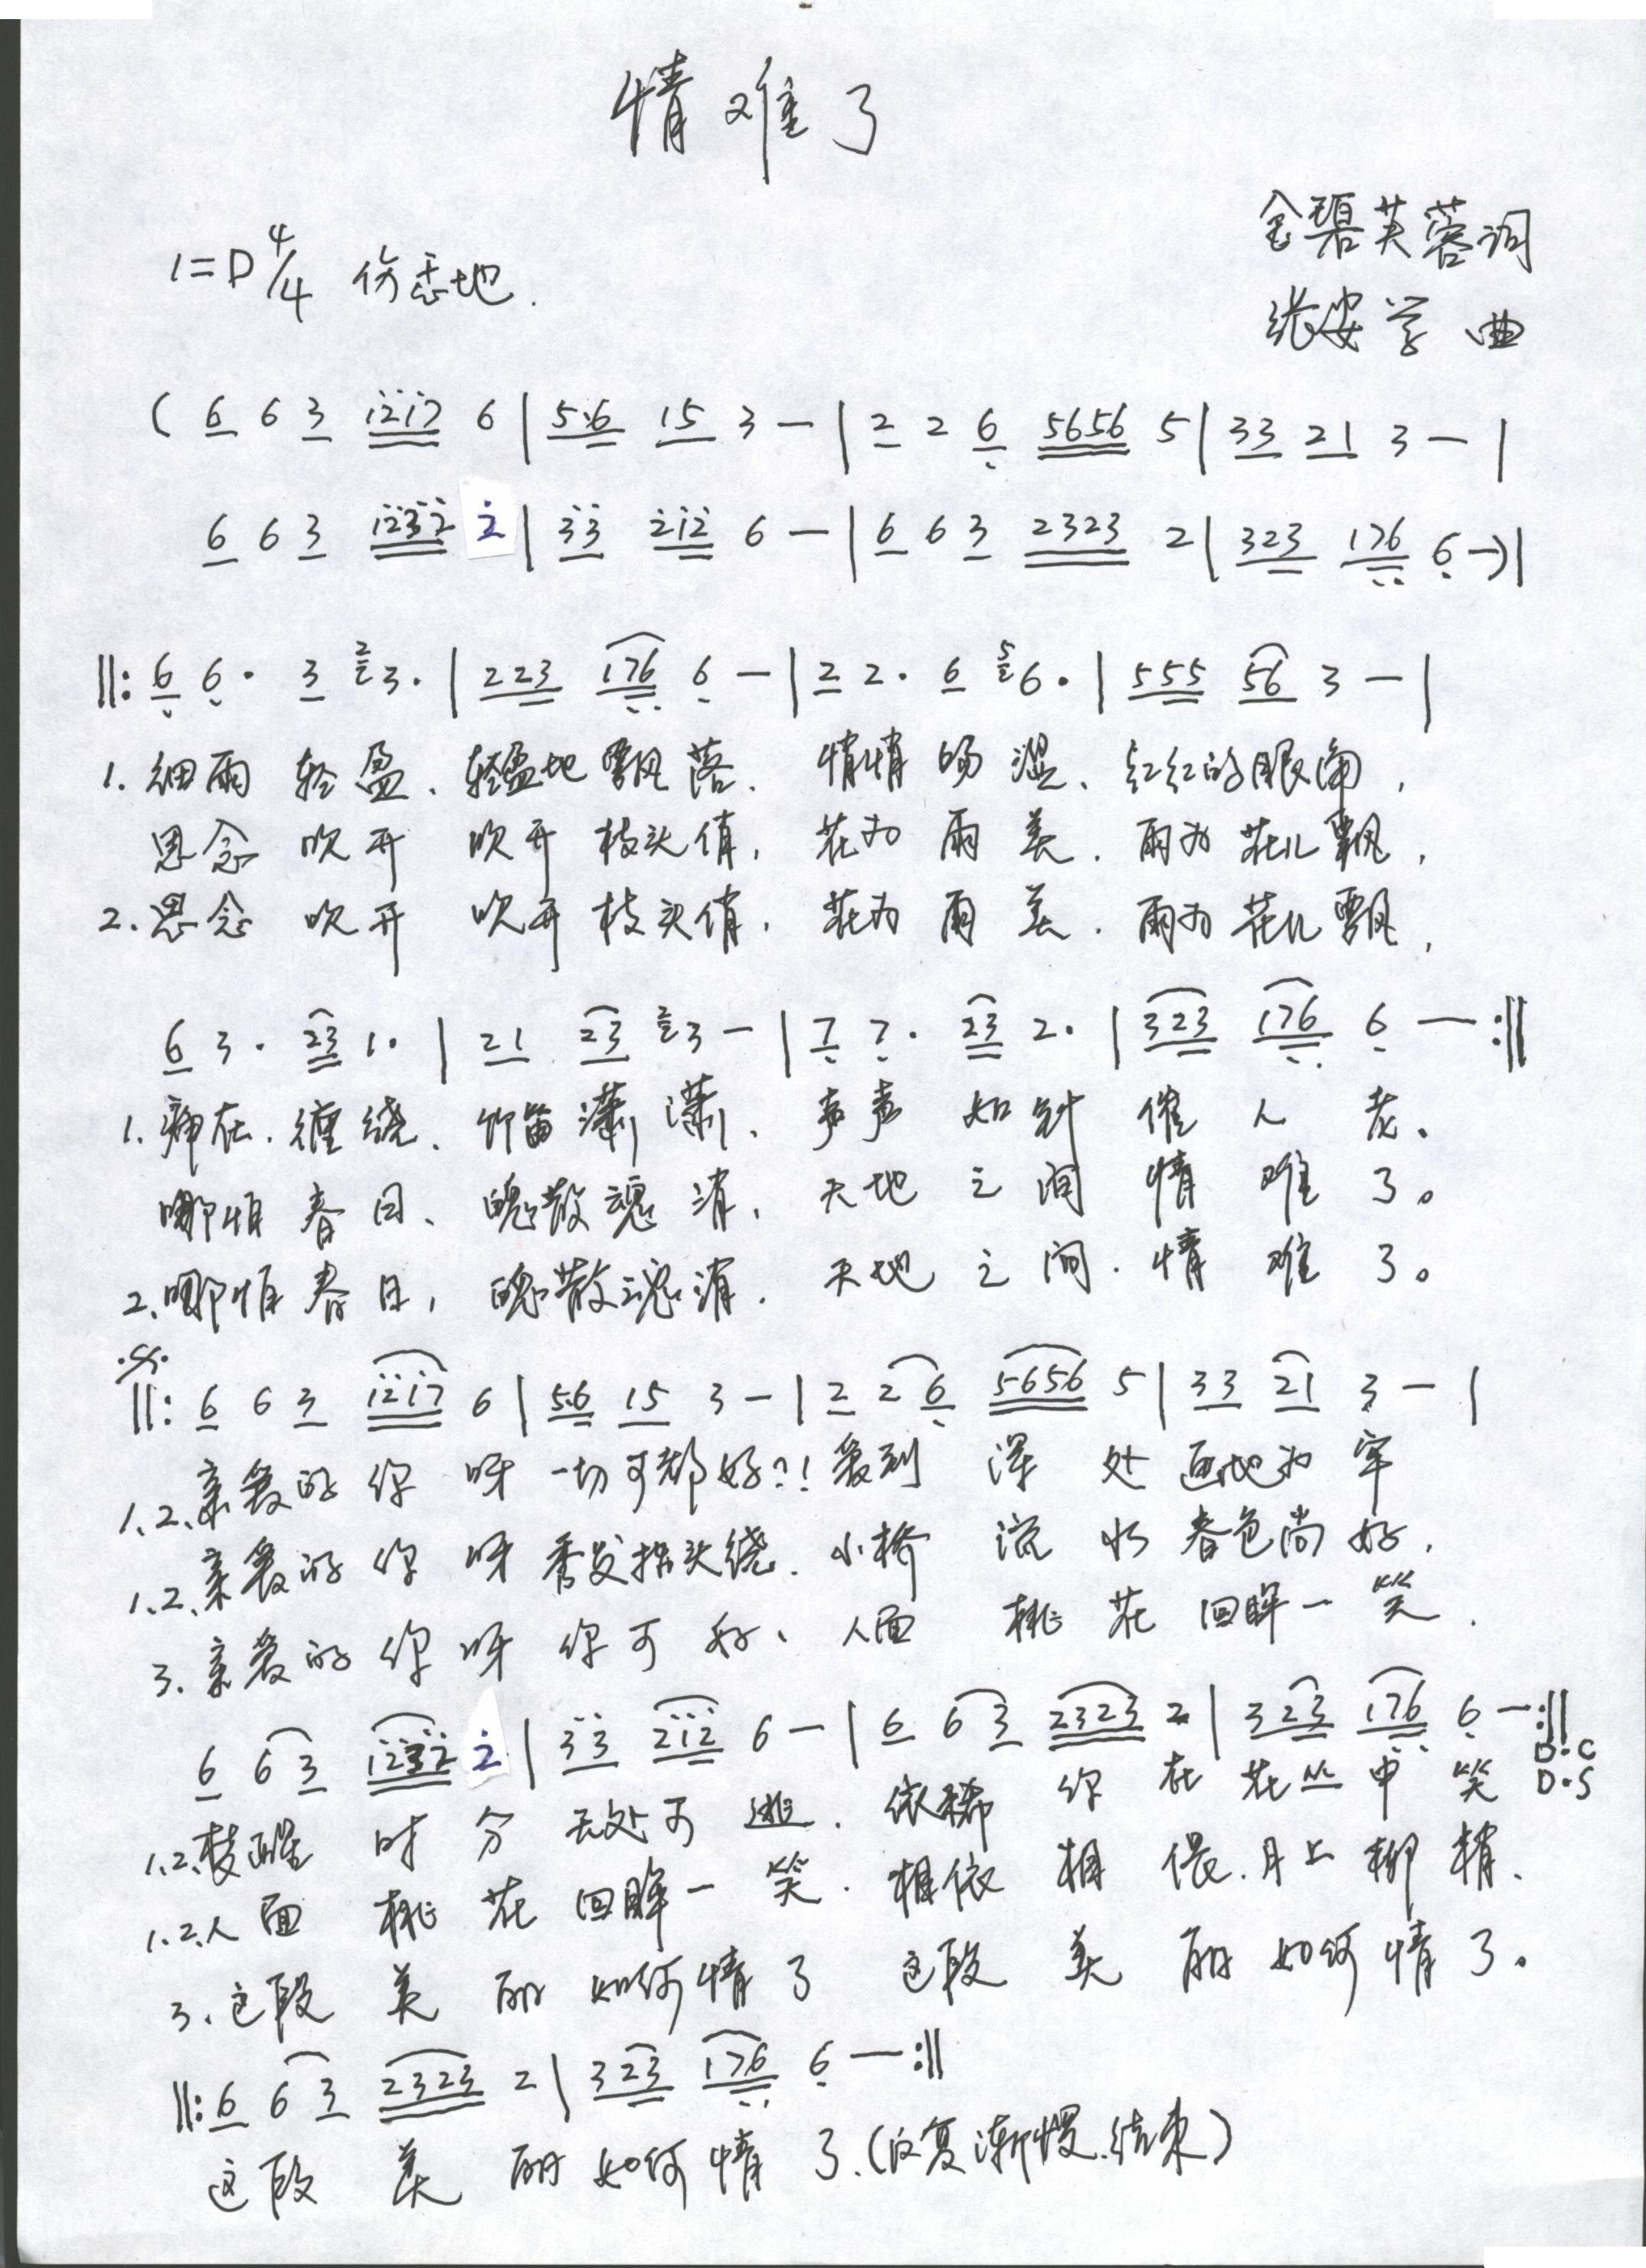 情难了
金碧芙蓉词
1=D 4/4 伤悲地.
张安学 曲
( 6 6 3 1217 6 | 5·6 15 3 — | 2 2 6 5656 5 | 33 21 3 — |
6 6 3 1232 2 | 33 212 6 — | 6 6 3 2323 2 | 323 176 6 — ) |
‖: 6 6· 3 2 3· | 223 176 6 — | 2 2· 6 5 6· | 555 56 3 — |
1. 细雨 轻盈、轻盈地飘落. 情情 涩、红红的眼角,
思念 吹开 吹开枝头俏, 花为雨美. 雨为花儿飘,
2. 思念 吹开 吹开枝头俏, 花为雨美. 雨为花儿飘,
6 3· 23 1· | 21 23 2 3 — | 7 7· 23 2· | 323 176 6 — :‖
1. 在. 缠绕、竹笛潇潇、声声 如 催人老.
哪怕春日、魄散魂消, 天地之间 情难了。
2. 哪怕春日, 魄散魂消. 天地之间. 情难了。
‖: 6 6 3 1217 6 | 5·6 15 3 — | 2 2 6 5656 5 | 33 21 3 — |
1.2. 亲爱的你呀 一切可都好?! 爱到深处画地为牢
1.2. 亲爱的你呀 秀发指头绕. 小桥流水春色尚好.
3. 亲爱的你呀 你可好、人面桃花回眸一笑.
6 6 3 1232 2 | 33 212 6 — | 6 6 3 2323 2 | 323 176 6 — :‖
D·C
D·S
1.2. 梦醒时分无处可逃. 依稀你在花丛中笑
1.2. 人面桃花回眸一笑. 相依相偎.月上柳梢.
3. 这段美丽如何情了 这段美丽如何情了。
‖: 6 6 3 2323 2 | 323 176 6 — :‖
这段美丽如何情了.(反复渐慢.结束)